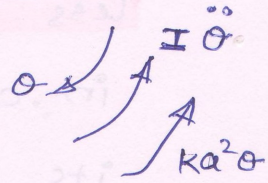 I θ̈
θ
ka²θ